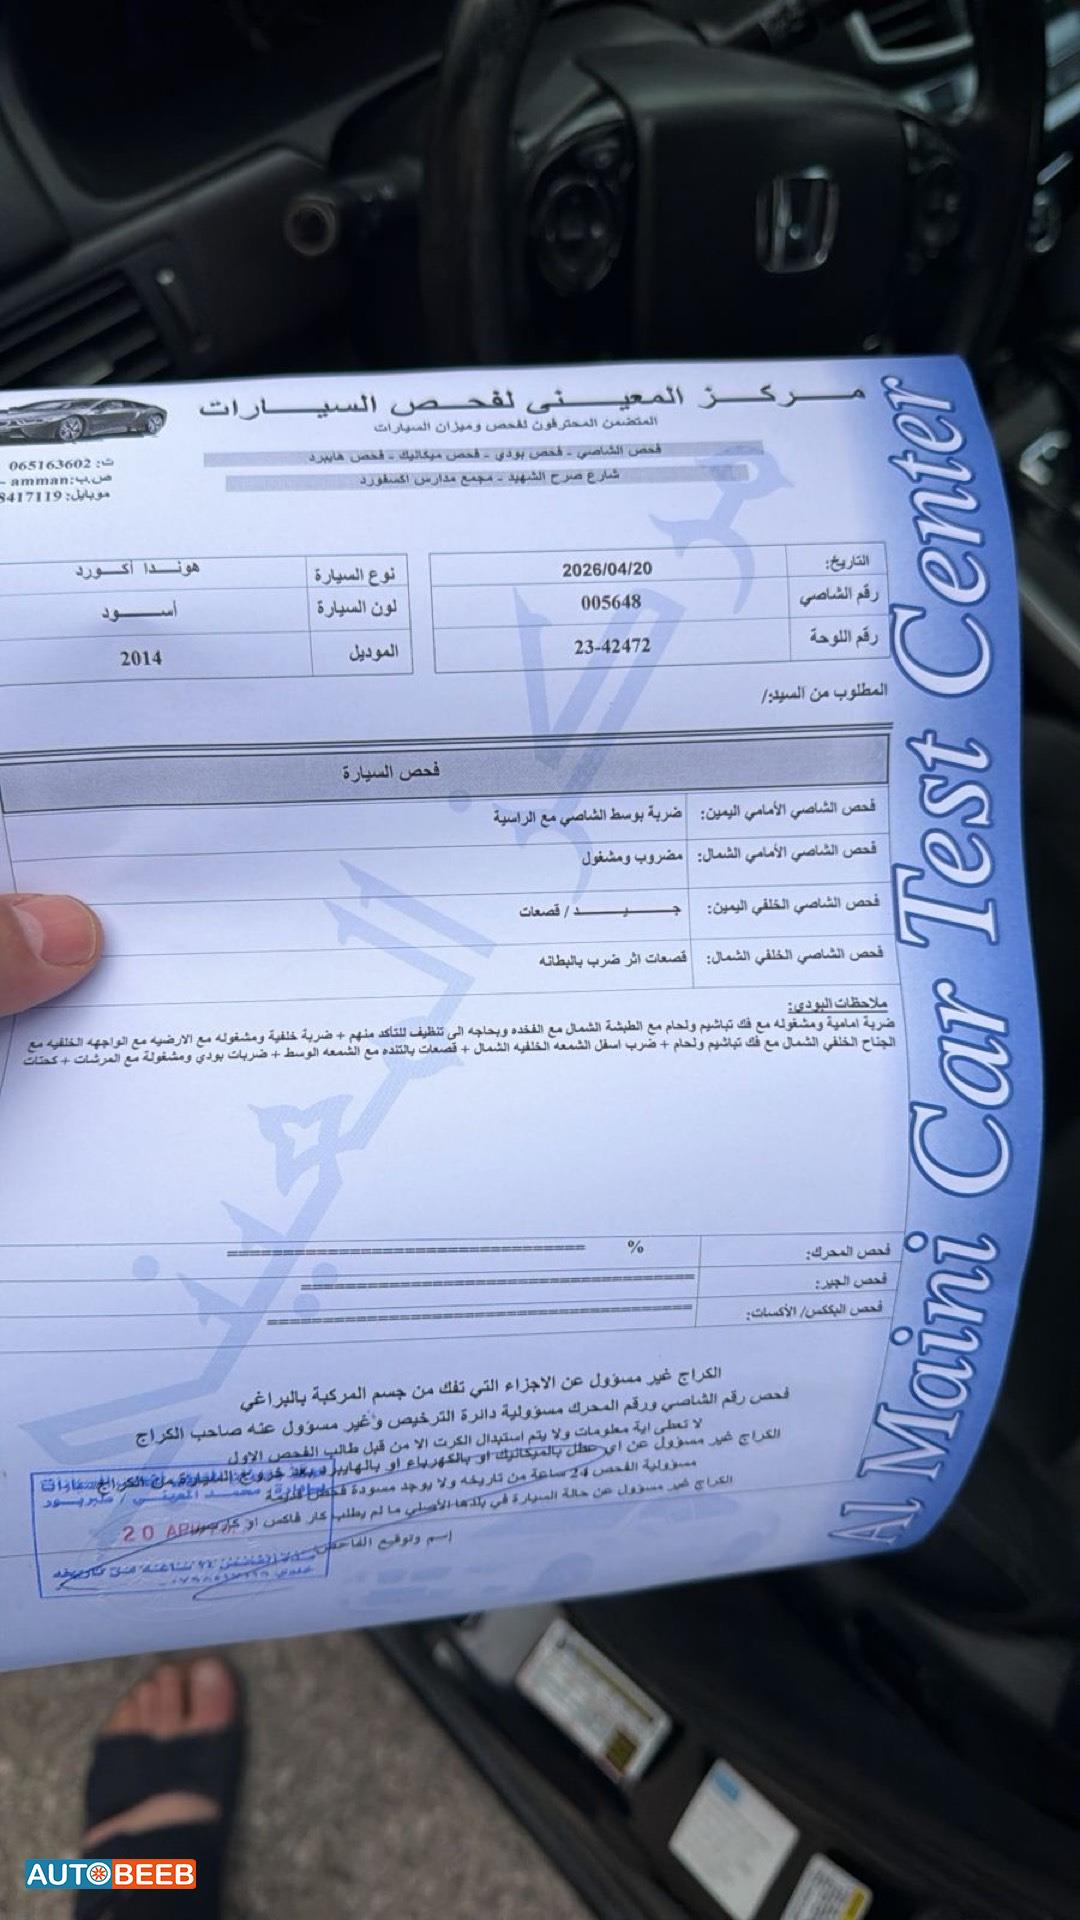 مركز المعيني لفحص السيارات
المتضمن المحترفون لفحص وميزان السيارات
فحص الشاصي - فحص بودي - فحص ميكانيك - فحص هايبرد
شارع صرح الشهيد - مجمع مدارس اكسفورد
ت: 065163602
ص.ب: amman -
موبايل: 8417119
التاريخ: 2026/04/20
رقم الشاصي 005648
رقم اللوحة 23-42472
نوع السيارة هوندا أكورد
لون السيارة أسود
الموديل 2014
المطلوب من السيد/:
فحص السيارة
فحص الشاصي الأمامي اليمين: ضربة بوسط الشاصي مع الراسية
فحص الشاصي الأمامي الشمال: مضروب ومشغول
فحص الشاصي الخلفي اليمين: جيد / قصعات
فحص الشاصي الخلفي الشمال: قصعات اثر ضرب بالبطانه
ملاحظات البودي:
ضربة امامية ومشغوله مع فك تباشيم ولحام مع الطبشة الشمال مع الفخده وبحاجه الى تنظيف للتأكد منهم + ضربة خلفية ومشغوله مع الارضيه مع الواجهه الخلفيه مع
الجناح الخلفي الشمال مع فك تباشيم ولحام + ضرب اسفل الشمعه الخلفيه الشمال + قصعات بالتنده مع الشمعه الوسط + ضربات بودي ومشغولة مع المرشات + كحتات
فحص المحرك: %
فحص الجير:
فحص البكس/ الأكسات:
الكراج غير مسؤول عن الاجزاء التي تفك من جسم المركبة بالبراغي
فحص رقم الشاصي ورقم المحرك مسؤولية دائرة الترخيص وغير مسؤول عنه صاحب الكراج
لا تعطى اية معلومات ولا يتم استبدال الكرت الا من قبل طالب الفحص الاول
الكراج غير مسؤول عن اي عطل بالميكانيك او بالكهرباء او بالهايبرد بعد خروج السيارة من الكراج
مسؤولية الفحص 24 ساعة من تاريخه ولا يوجد مسودة فحص قديمة
الكراج غير مسؤول عن حالة السيارة في بلدها الأصلي ما لم يطلب كار فاكس او كارسير
إسم وتوقيع الفاحص
20 APR
Al Maini Car Test Center
AUTOBEEB